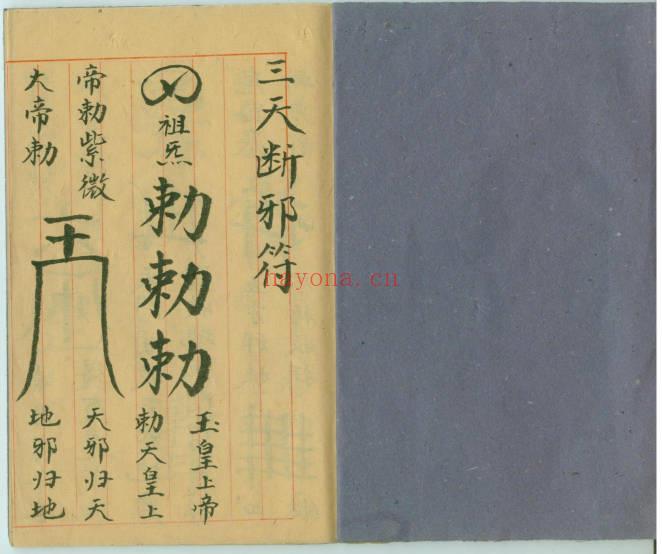 三天断邪符
祖炁
勅勅勅
玉皇上帝
勅天皇上
帝勅紫微
大帝勅
天邪归天
地邪归地
hayona.cn